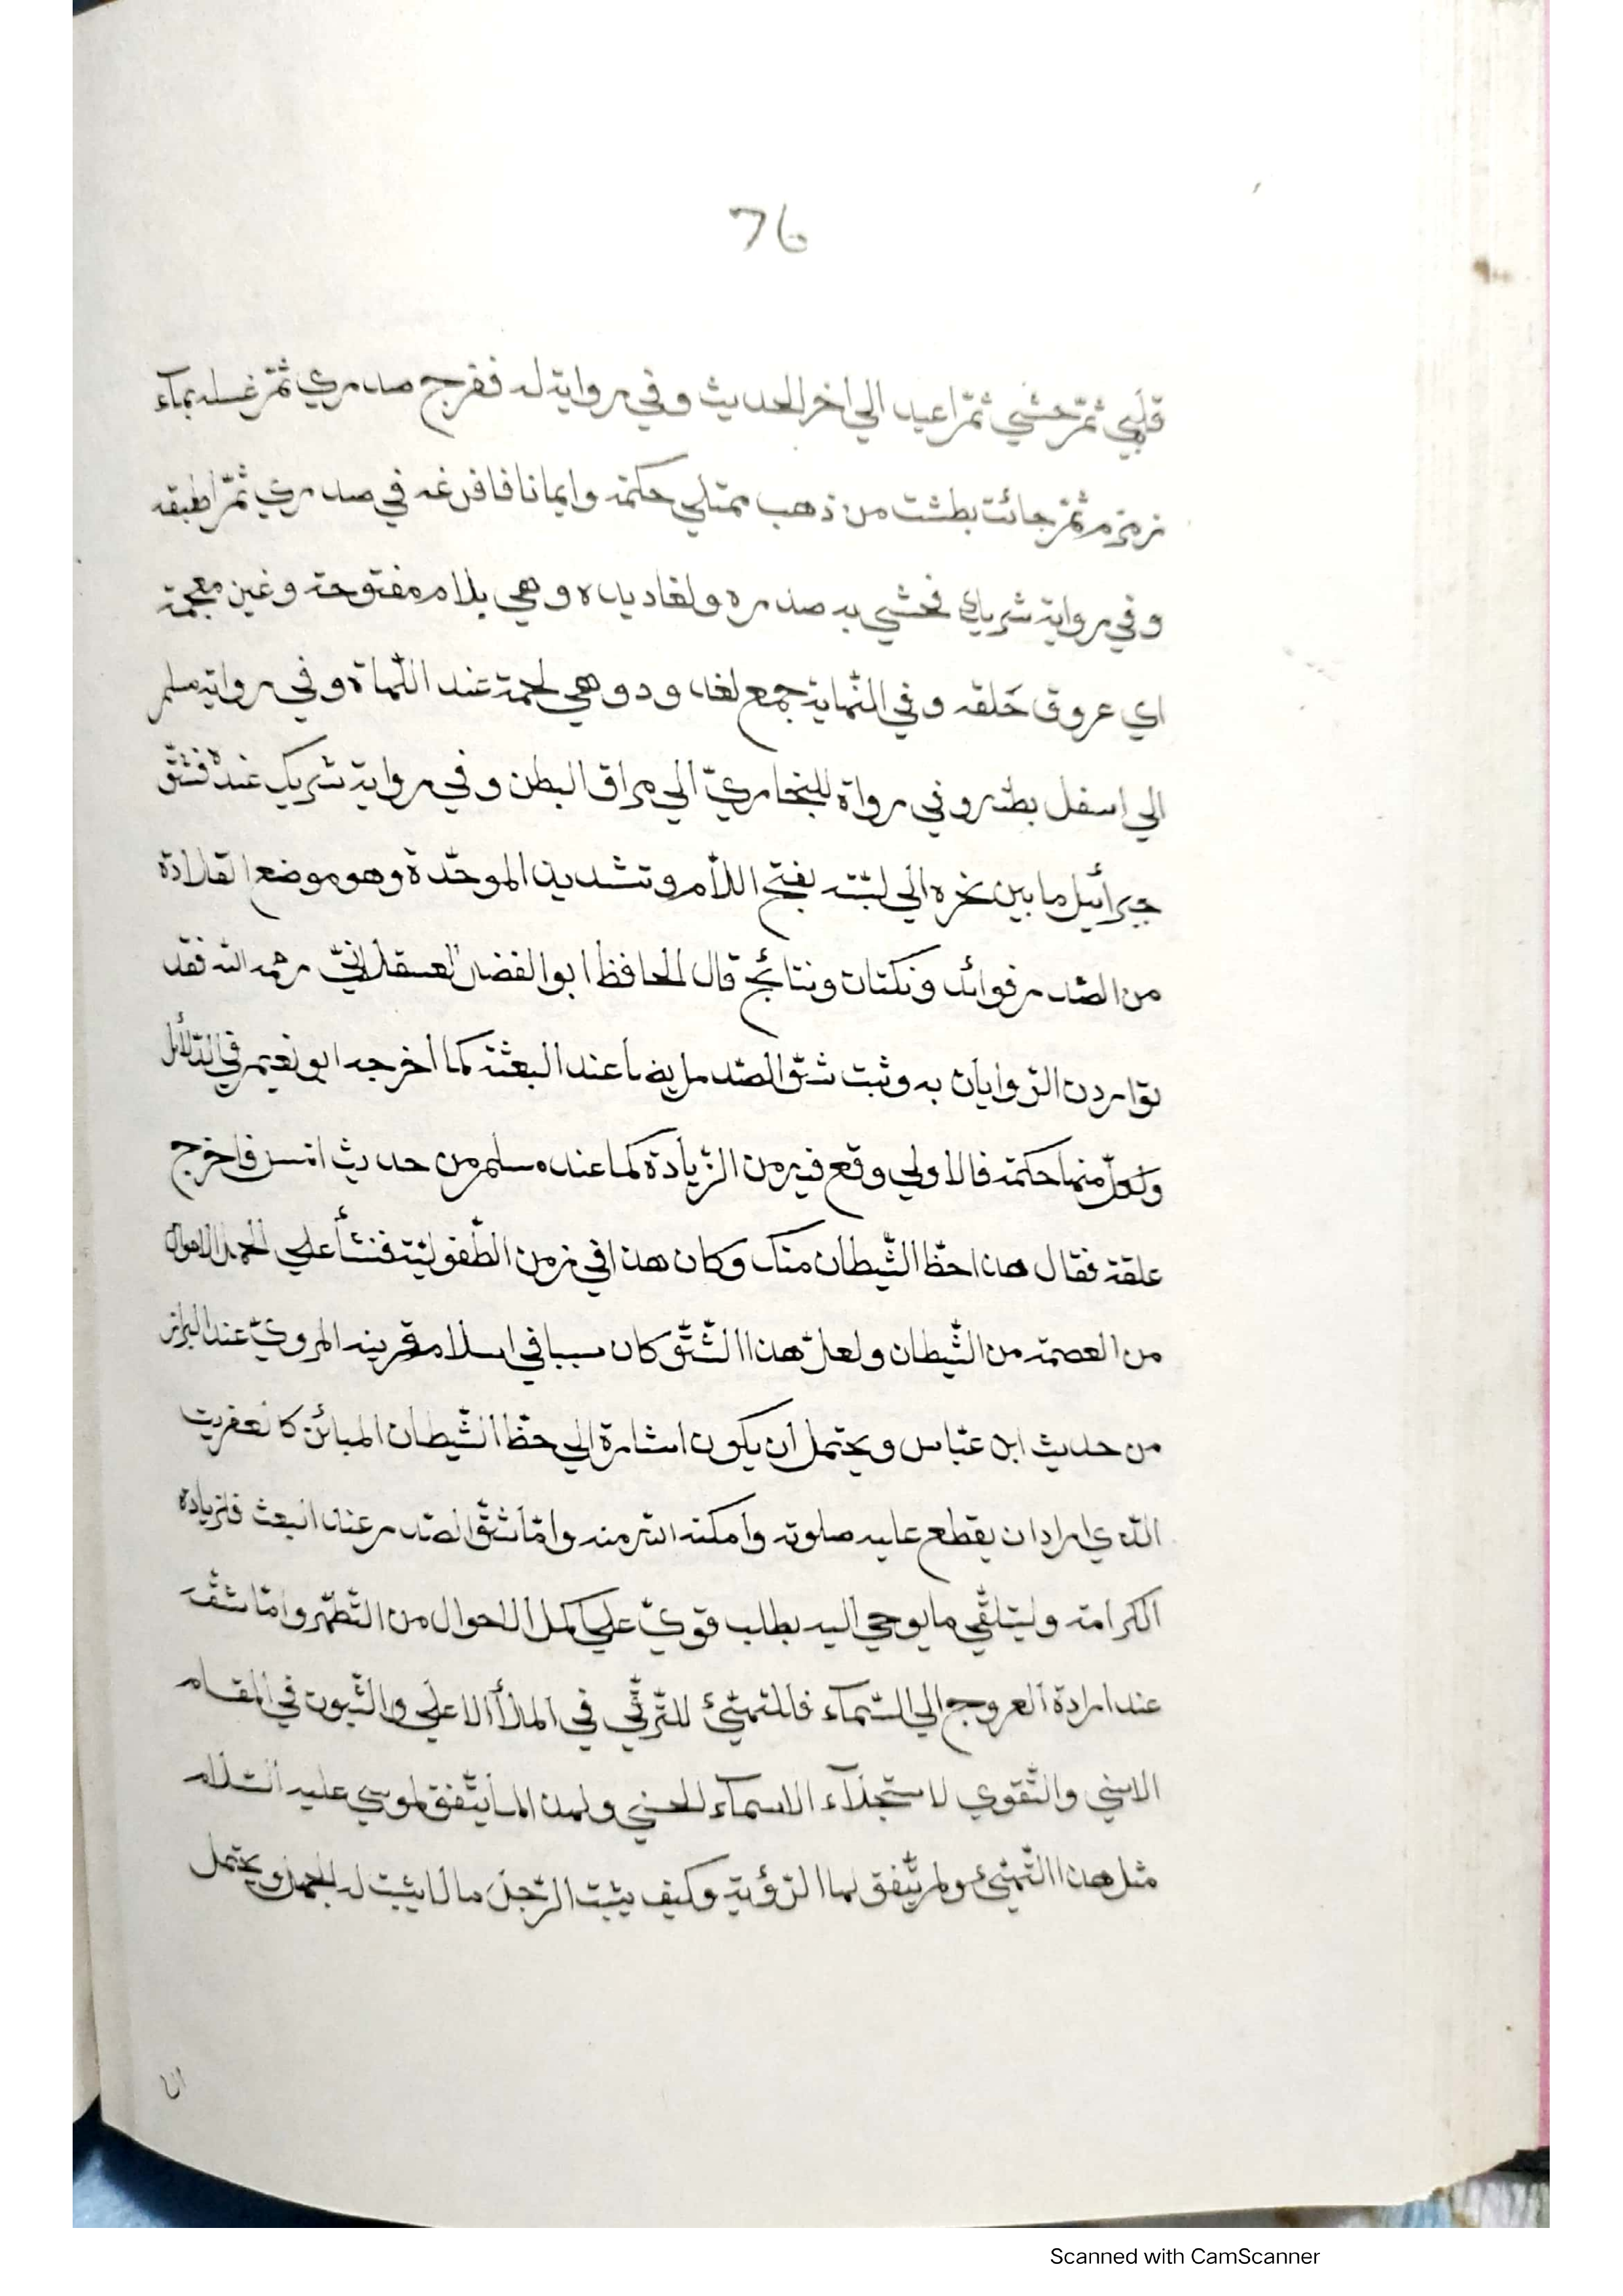 76
قلبي ثمّ حشي ثمّ اعيد الي اخر الحديث و في رواية له ففرج صدري ثمّ غسله بمآء
زمزم ثمّ جائت بطشت من ذهب ممتلي حكمة وايمانا فافرغه في صدري ثمّ اطبقه
و في رواية شريك فحشي به صدره ولغاديده وهي بلام مفتوحة وغين معجمة
اي عروق حَلقه و في النّهاية جمع لغدود وهي لحمة عند اللّهاة و في رواية مسلم
الي اسفل بطنه و في رواة للبخاريّ الي مراق البطن و في رواية شريك عنده فشقّ
جبرأئيل ما بين نحره الي لبّته بفتح اللاّم وتشديد الموحّدة وهو موضع القلادة
من الصّدر فوائد ونكتات ونتائج قال الحافظ ابو الفضل العسقلانيّ رحمه الله فقد
تواردن الرّوايان به وثبت شقّ الصّدر ايضا عند البعثة كما اخرجه ابو نعيم في الدّلائل
ولكلّ منها حكمة فالاولي وقع فيه من الزّيادة كما عند مسلم من حديث انس فاخرج
علقة فقال هذا حظّ الشّيطان منك وكان هذا في زمن الطّفوليّة فنشأ علي اكمل الاحوال
من العصمة من الشّيطان ولعلّ هذا الشّقّ كان سببا في اسلام قرينه المرويّ عند البزاز
من حديث ابن عبّاس ويحتمل ان يكون اشارة الي حظّ الشّيطان المبائن كالعفريت
الّذي اراد ان يقطع عليه صلوته وامكنه الله منه وامّا شقّ الصّدر عند البعث فلزيادة
الكرامة وليتلقّي ما يوحي اليه بطلب قويّ علي اكمل الاحوال من التّطهّر وامّا شقّه
عند ارادة العروج الي السّمآء فالتهيّئ للتّرقّي في الملأ الاعلي والثّبوت في المقام
الاسني والتّقوي لاستجلآء الاسمآء الحسني ولهذا لما يتّفق لموسي عليه السّلام
مثل هذا التّهيّئ ولم يتّفق لها الرّؤية وكيف يثبت الرّجل ما لا يثبت له الجبل ويحتمل
ان
Scanned with CamScanner